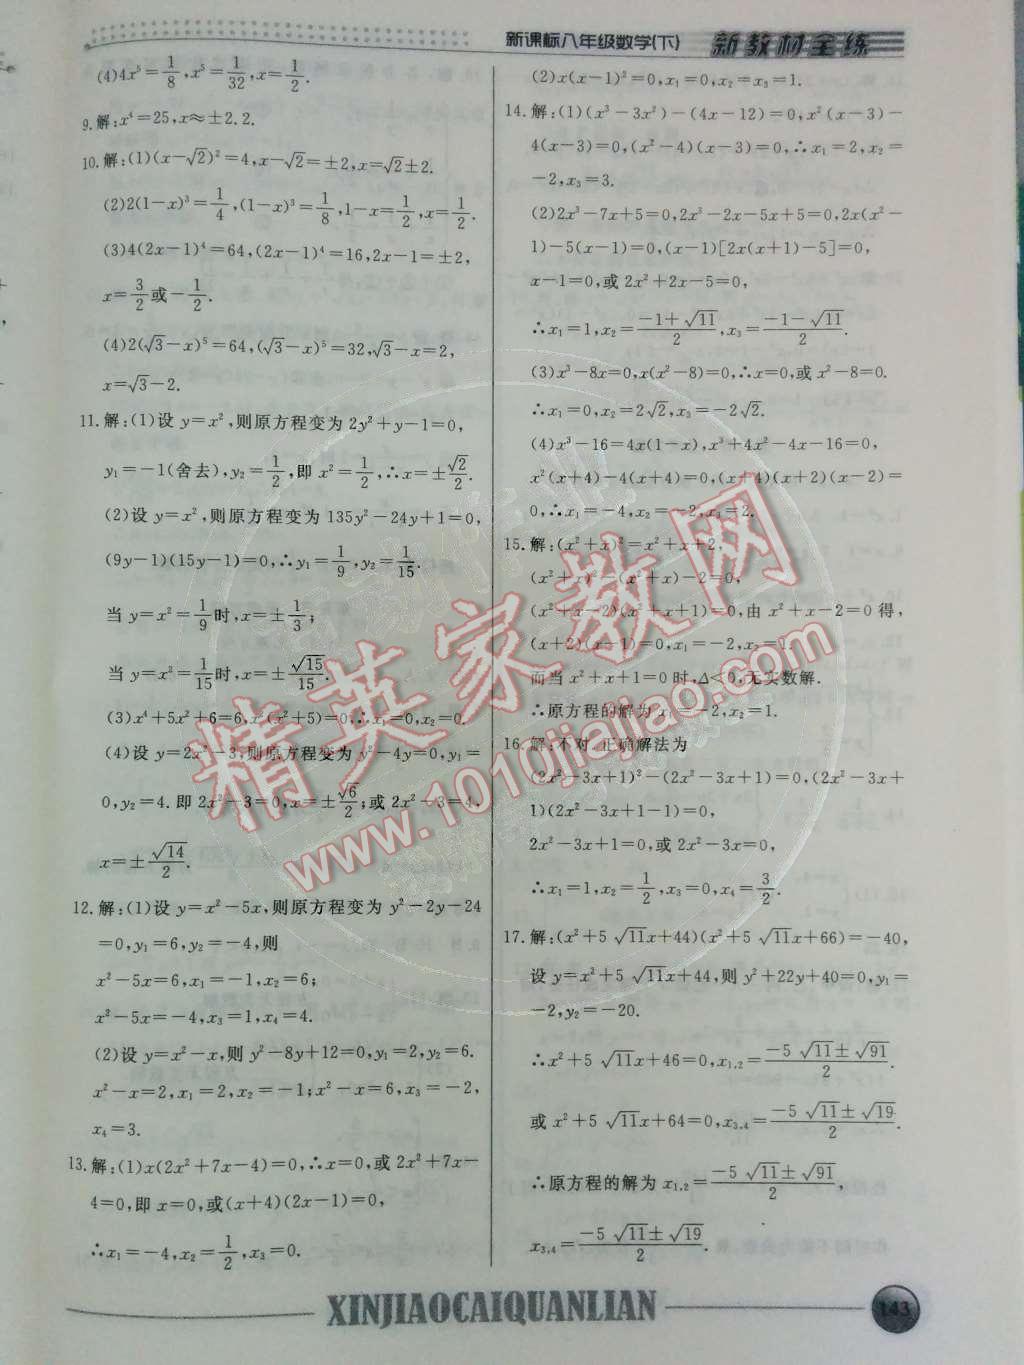 新课标八年级数学(下) 新教材全练
(4)4x⁵=1/8,x⁵=1/32,x=1/2.
9.解:x⁴=25,x≈±2.2.
10.解:(1)(x-√2)²=4,x-√2=±2,x=√2±2.
(2)2(1-x)³=1/4,(1-x)³=1/8,1-x=1/2,x=1/2.
(3)4(2x-1)⁴=64,(2x-1)⁴=16,2x-1=±2,
x=3/2或-1/2.
(4)2(√3-x)⁵=64,(√3-x)⁵=32,√3-x=2,
x=√3-2.
11.解:(1)设 y=x²,则原方程变为 2y²+y-1=0,
y₁=-1(舍去),y₂=1/2,即 x²=1/2,∴x=±√2/2.
(2)设 y=x²,则原方程变为 135y²-24y+1=0,
(9y-1)(15y-1)=0,∴y₁=1/9,y₂=1/15.
当 y=x²=1/9时,x=±1/3;
当 y=x²=1/15时,x=±√15/15.
(3)x⁴+5x²+6=6,x²(x²+5)=0,∴x₁=0,x₂=0.
(4)设 y=2x²-3,则原方程变为 y²-4y=0,y₁=
0,y₂=4.即 2x²-3=0,x=±√6/2;或 2x²-3=4,
x=±√14/2.
12.解:(1)设 y=x²-5x,则原方程变为 y²-2y-24
=0,y₁=6,y₂=-4,则
x²-5x=6,x₁=-1,x₂=6;
x²-5x=-4,x₃=1,x₄=4.
(2)设 y=x²-x,则 y²-8y+12=0,y₁=2,y₂=6.
x²-x=2,x₁=2,x₂=-1;x²-x=6,x₃=-2,
x₄=3.
13.解:(1)x(2x²+7x-4)=0,∴x=0,或 2x²+7x-
4=0,即 x=0,或(x+4)(2x-1)=0,
∴x₁=-4,x₂=1/2,x₃=0.
(2)x(x-1)²=0,x₁=0,x₂=x₃=1.
14.解:(1)(x³-3x²)-(4x-12)=0,x²(x-3)-
4(x-3)=0,(x²-4)(x-3)=0,∴x₁=2,x₂=
-2,x₃=3.
(2)2x³-7x+5=0,2x³-2x-5x+5=0,2x(x²-
1)-5(x-1)=0,(x-1)[2x(x+1)-5]=0,
x-1=0,或 2x²+2x-5=0,
∴x₁=1,x₂=(-1+√11)/2,x₃=(-1-√11)/2.
(3)x³-8x=0,x(x²-8)=0,∴x=0,或 x²-8=0.
∴x₁=0,x₂=2√2,x₃=-2√2.
(4)x³-16=4x(1-x),x³+4x²-4x-16=0,
x²(x+4)-4(x+4)=0,(x+4)(x+2)(x-2)=
0,∴x₁=-4,x₂=-2,x₃=2.
15.解:(x²+x)²=x²+x+2,
(x²+x)²-(x²+x)-2=0,
(x²+x-2)(x²+x+1)=0,由 x²+x-2=0 得,
(x+2)(x-1)=0,x₁=-2,x₂=1.
而当 x²+x+1=0 时,Δ<0,无实数解.
∴原方程的解为 x₁=-2,x₂=1.
16.解:不对.正确解法为
(2x²-3x+1)²-(2x²-3x+1)=0,(2x²-3x+
1)(2x²-3x+1-1)=0,
2x²-3x+1=0,或 2x²-3x=0,
∴x₁=1,x₂=1/2,x₃=0,x₄=3/2.
17.解:(x²+5√11x+44)(x²+5√11x+66)=-40,
设 y=x²+5√11x+44,则 y²+22y+40=0,y₁=
-2,y₂=-20.
∴x²+5√11x+46=0,x₁,₂=(-5√11±√91)/2
或 x²+5√11x+64=0,x₃,₄=(-5√11±√19)/2.
∴原方程的解为 x₁,₂=(-5√11±√91)/2,
x₃,₄=(-5√11±√19)/2.
精英家教网
www.1010jiajiao.com
XINJIAOCAIQUANLIAN
143